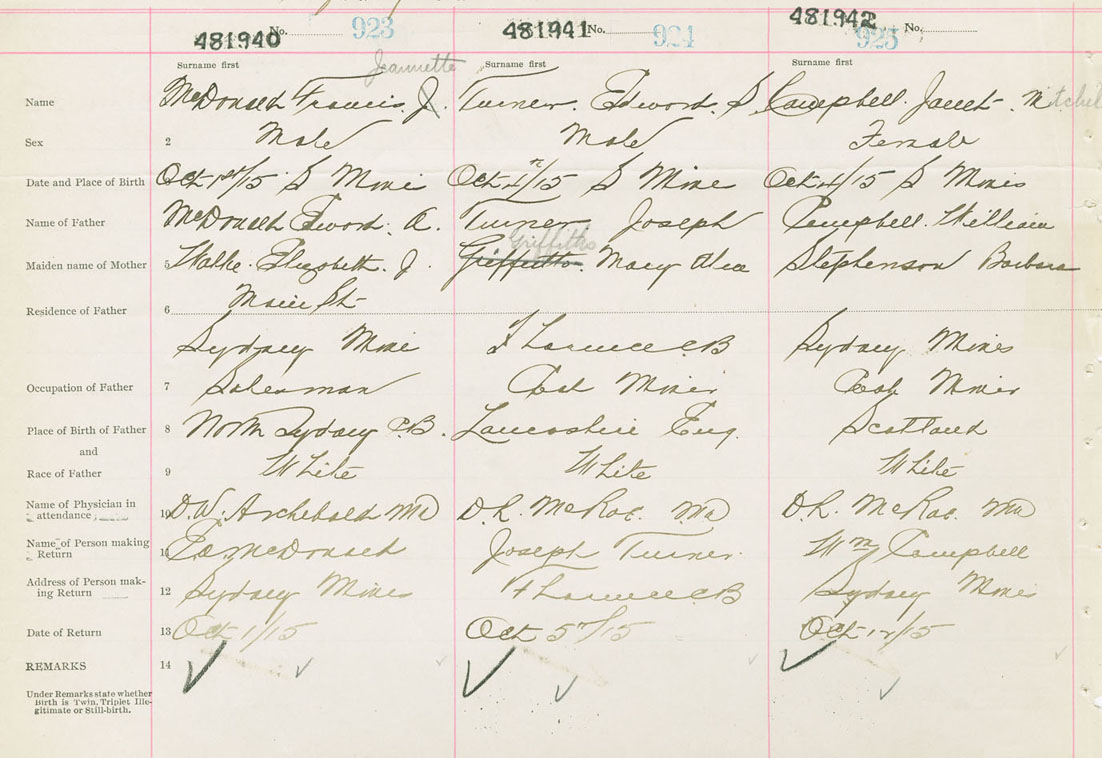 481940 No. 923 481941 No. 924 481942 No. 925
Surname first Jeannette Surname first Surname first
Name McDonald Francis. J. Turner. Edward. S. Campbell. Janet. Mitchel
Sex 2 Male Male Female
Date and Place of Birth Oct 1st/15 S Mine Oct 4/15 S Mine Oct 4/15 S Mines
Name of Father McDonald Edward. A. Turner Joseph Campbell. William
Griffiths
Maiden name of Mother 5 Elizabeth. J. Mary Stephenson Barbara
Main St
Residence of Father 6
Sydney Mine Florence CB Sydney Mines
Occupation of Father 7 Coal Miner Coal Miner
Place of Birth of Father 8 North Sydney C.B. Lancashire Eng. Scotland
and
Race of Father 9 White White White
Name of Physician in
attendance 10 D.W. Archibald MD D.L. McRae. MD D.L. McRae. MD
Name of Person making
Return 11 Ed McDonald Joseph Turner. Wm Campbell
Address of Person mak-
ing Return 12 Sydney Mines Florence CB Sydney Mines
Date of Return 13 Oct 1/15 Oct 5/15 Oct 12/15
REMARKS 14
Under Remarks state whether
Birth is Twin, Triplet Ille-
gitimate or Still-birth.